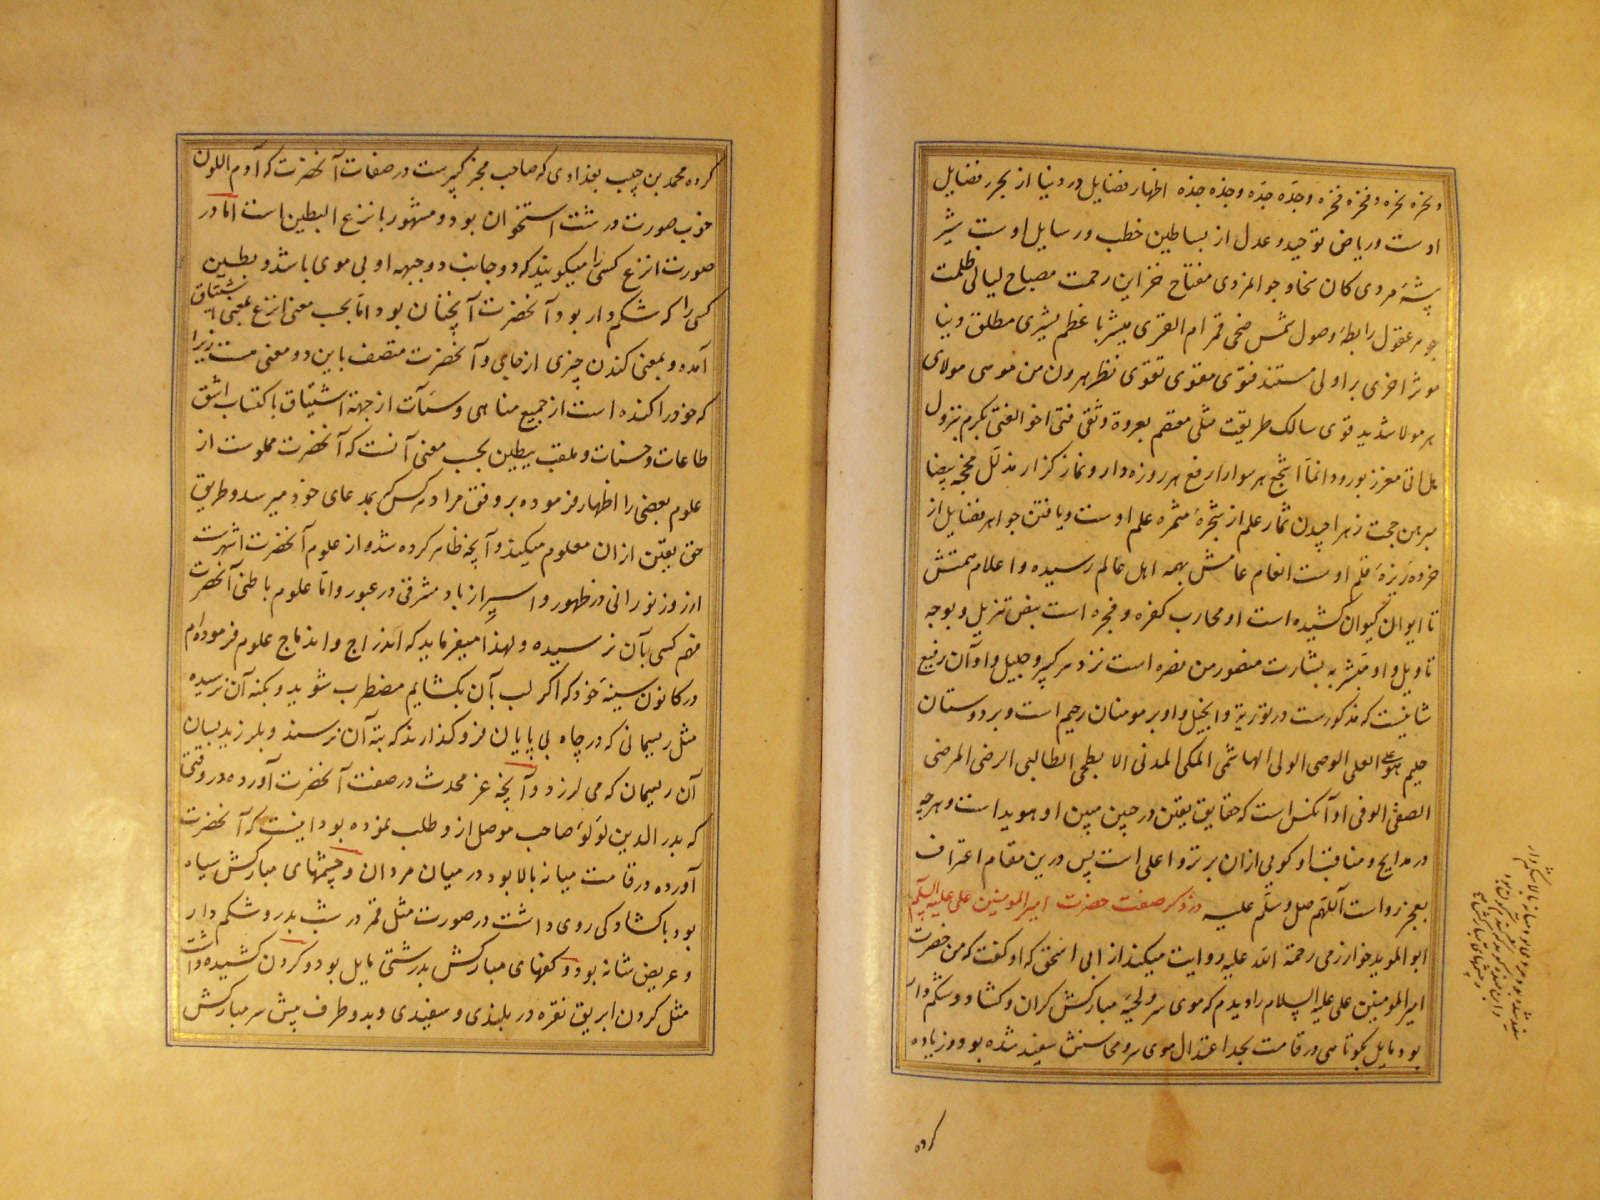 اوست و ریاض توحید و عدل از بساطین خطب و رسایل اوست شیر
پشهٔ مردی کان سخا و جوانمردی مفتاح خزاین رحمت مصباح لیالی ظلمت
جوهر عقول رابطهٔ وصول شمس ضحی قمر ام القری مبشر با عظم بشری مطلق دنیا
موثر اخری بر اولی مستند فتوی مقوی تقوی نظیر هرون من موسی مولای
هر مولا شدید قوی سالک طریقت مثلی معتصم بعروة وثقی فتی اخو الفتی مکرم بنزول
هل اتی معزز بورود انما اشجع هر سوار ارفع هر روزه دار و نماز کزار مذلل
مبرهن حجت زهرا چیدن ثمار علم از شجرهٔ مثمره علم اوست و یافتن جواهر فضایل از
خرده ریزهٔ قلم اوست انعام عامش بهمه اهل عالم رسیده و اعلام همتش
تا ایوان کیوان کشیده است او محارب کفره و فجره است بنص تنزیل و بوجه
تاویل و او مبشر به بشارت منصور من نصره است نزد هر کبیر و جلیل و او آن رفیع
شانیست که مذکورست در توریة و انجیل و او بر مومنان رحیم است و بر دوستان
حلیم هو العلی الوصی الولی الهاشمی المکی المدنی الابطحی الطالبی الرضی المرضی
الصفی الوفی او آنکس است که حقایق یقین در جبین مبین او هویداست و هرچه
در مدایح و مناقب او کویی ازان برتر و اعلی است پس درین مقام اعتراف
بعجز رواست اللهم صل و سلم علیه در ذکر صفت حضرت امیر المومنین علی علیه السلام
ابو الموید خوارزمی رحمة الله علیه روایت میکند از ابی اسحق که او کفت که من حضرت
امیر المومنین علی علیه السلام را دیدم که موی سر و لحیهٔ مبارکش کران و کشاد و شکم وار
بود مایل بکوتاهی در قامت بحد اعتدال موی سر و محاسنش سفید شده بود و زیاده
کرده
کرده محمد بن حبیب بغدادی که صاحب محبر کبیرست در صفات آنحضرت که آدم اللون
خوب صورت درشت استخوان بود و مشهور بانزع البطین است اما در
صورت انزع کسی را میکویند که دو جانب دو جبهه او بی موی باشد و بطین
کسی را که شکم دار بود آنحضرت آنچنان بود اما بحسب معنی انزع بمعنی اشتیاق
آمده و بمعنی کندن چیزی از جای و آنحضرت متصف باین دو معنی هست زیرا
که خود را کنده است از جمیع مناهی و سیئات از جهة اشتیاق باکتساب اشق
طاعات و حسنات و ملقب ببطین بحسب معنی آنست که آنحضرت مملوست از
علوم بعضی را اظهار فرموده بر وفق مراد هر کس بمدعای خود میرسد و طریق
حق یقین ازان معلوم میکیند و آنچه ظاهر کرده شد و از علوم آنحضرت اشهرست
از روز نورانی در ظهور و اسیر از باد مشرقی در عبور و اما علوم باطنی آنحضرت
فهم کسی بآن نرسیده و لهذا میفرماید که اندراج و اندماج علوم فرموده‌ام
در کانون سینهٔ خود که اکر لب بآن بکشایم مضطرب شوید و بکنه آن نرسیده
مثل ریسمانی که در چاه بی پایان فرو کذارند که بته آن نرسند و بلرزید بسان
آن ریسمان که می لرزد و آنچه عز محدث در صفت آنحضرت آورده در وقتی
که بدر الدین لؤلؤ صاحب موصل ازو طلب نموده بود اینست که آنحضرت
آورده در قامت میانه بالا بود در میان مردان و چشمهای مبارکش سیاه
بود با کشادکی روی داشت در صورت مثل قمر در شب بدر و شکم دار
و عریض شانه بود و کفهای مبارکش بدرشتی مایل بود و کردن کشیده داشت
مثل کردن ابریق نقره در بلندی و سفیدی و بدو طرف پیش سر مبارکش